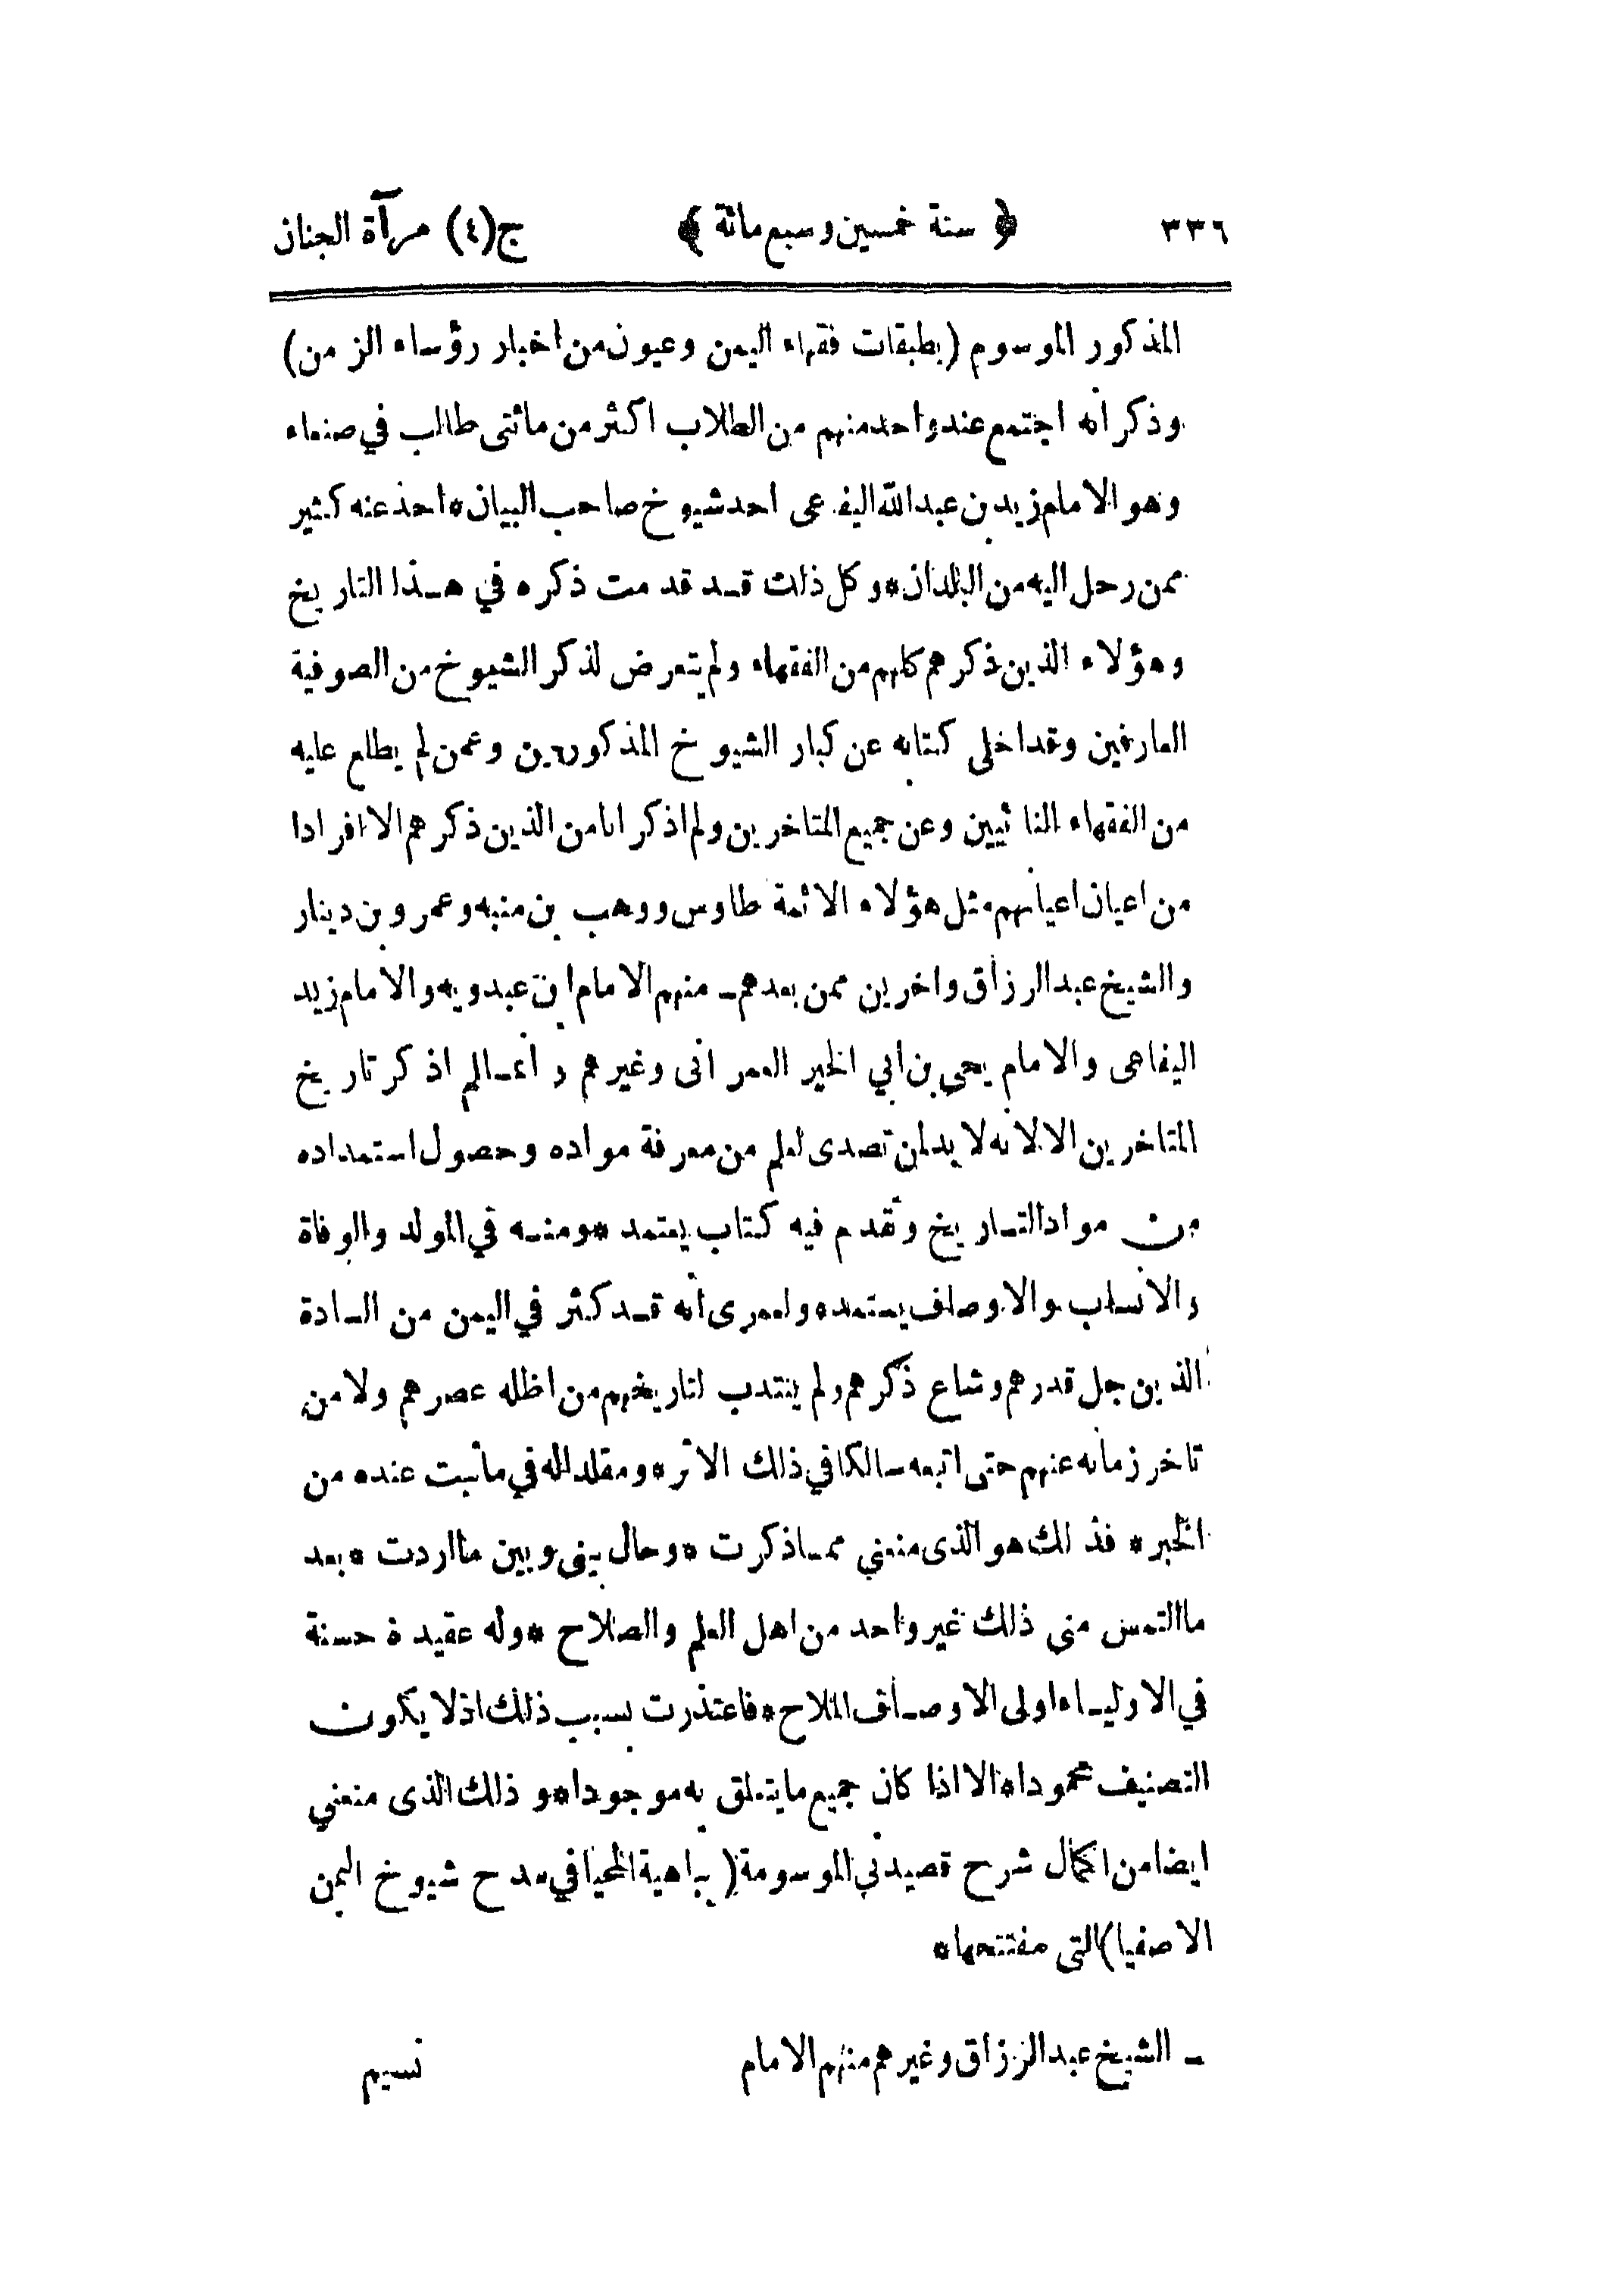 ٣٣٦ ﴿ سنة خمسين وسبع مائة ﴾ ج(٤) مرآة الجنان
المذكور الموسوم (بطبقات فقهاء اليمن وعيون من اخبار رؤساء الزمن)
وذكر انه اجتمع عند واحد منهم من الطلاب اكثر من مائتى طالب في صنعاء
وهو الامام زيد بن عبد الله اليفاعى احد شيوخ صاحب البيان * اخذ عنه كثير
ممن رحل اليه من البلدان * وكل ذلك قد قدمت ذكره في هذا التاريخ
وهؤلاء الذين ذكرهم كلهم من الفقهاء ولم يتعرض لذكر الشيوخ من الصوفية
العارفين وقد اخلى كتابه عن كبار الشيوخ المذكورين وعمن لم يطلع عليه
من الفقهاء النائيين وعن جميع المتاخرين ولم اذكر انا من الذين ذكرهم الا افرادا
من اعيان اعيانهم مثل هؤلاء الائمة طاوس ووهب بن منبه وعمرو بن دينار
والشيخ عبد الرزاق واخرين ممن بعدهم ـ منهم الامام ابن عبدويه والامام زيد
اليفاعى والامام يحيى بن ابي الخير العمرانى وغيرهم وانما لم اذكر تاريخ
المتاخرين الا لانه لا بد لمن تصدى لعلم من معرفة مواده وحصول استمداده
من مواد التاريخ وتقدم فيه كتاب يعتمد * ومنه في المولد والوفاة
والانساب والاوصاف يستمد * ولعمرى انه قد كثر في اليمن من السادة
الذين جل قدرهم وشاع ذكرهم ولم ينتدب لتاريخهم من اظله عصرهم ولا من
تاخر زمانه عنهم حتى اتبعه سالكا في ذلك الاثر * ومقلدا له في ما ثبت عنده من
الخبر * فذلك هو الذى منعني مما ذكرت * وحال بينى وبين ما اردت * بعد
ما التمس منى ذلك غير واحد من اهل العلم والصلاح * وله عقيدة حسنة
في الاولياء اولى الاوصاف الملاح * فاعتذرت بسبب ذلك اذ لا يكون
التصنيف محمودا * الا اذا كان جميع ما يتعلق به موجودا * وذلك الذى منعني
ايضا من اكمال شرح قصيدتي الموسومة (بباهية المحيا في مدح شيوخ اليمن
الاصفيا) التى مفتتحها *
ـ الشيخ عبد الرزاق وغيرهم منهم الامام نسيم